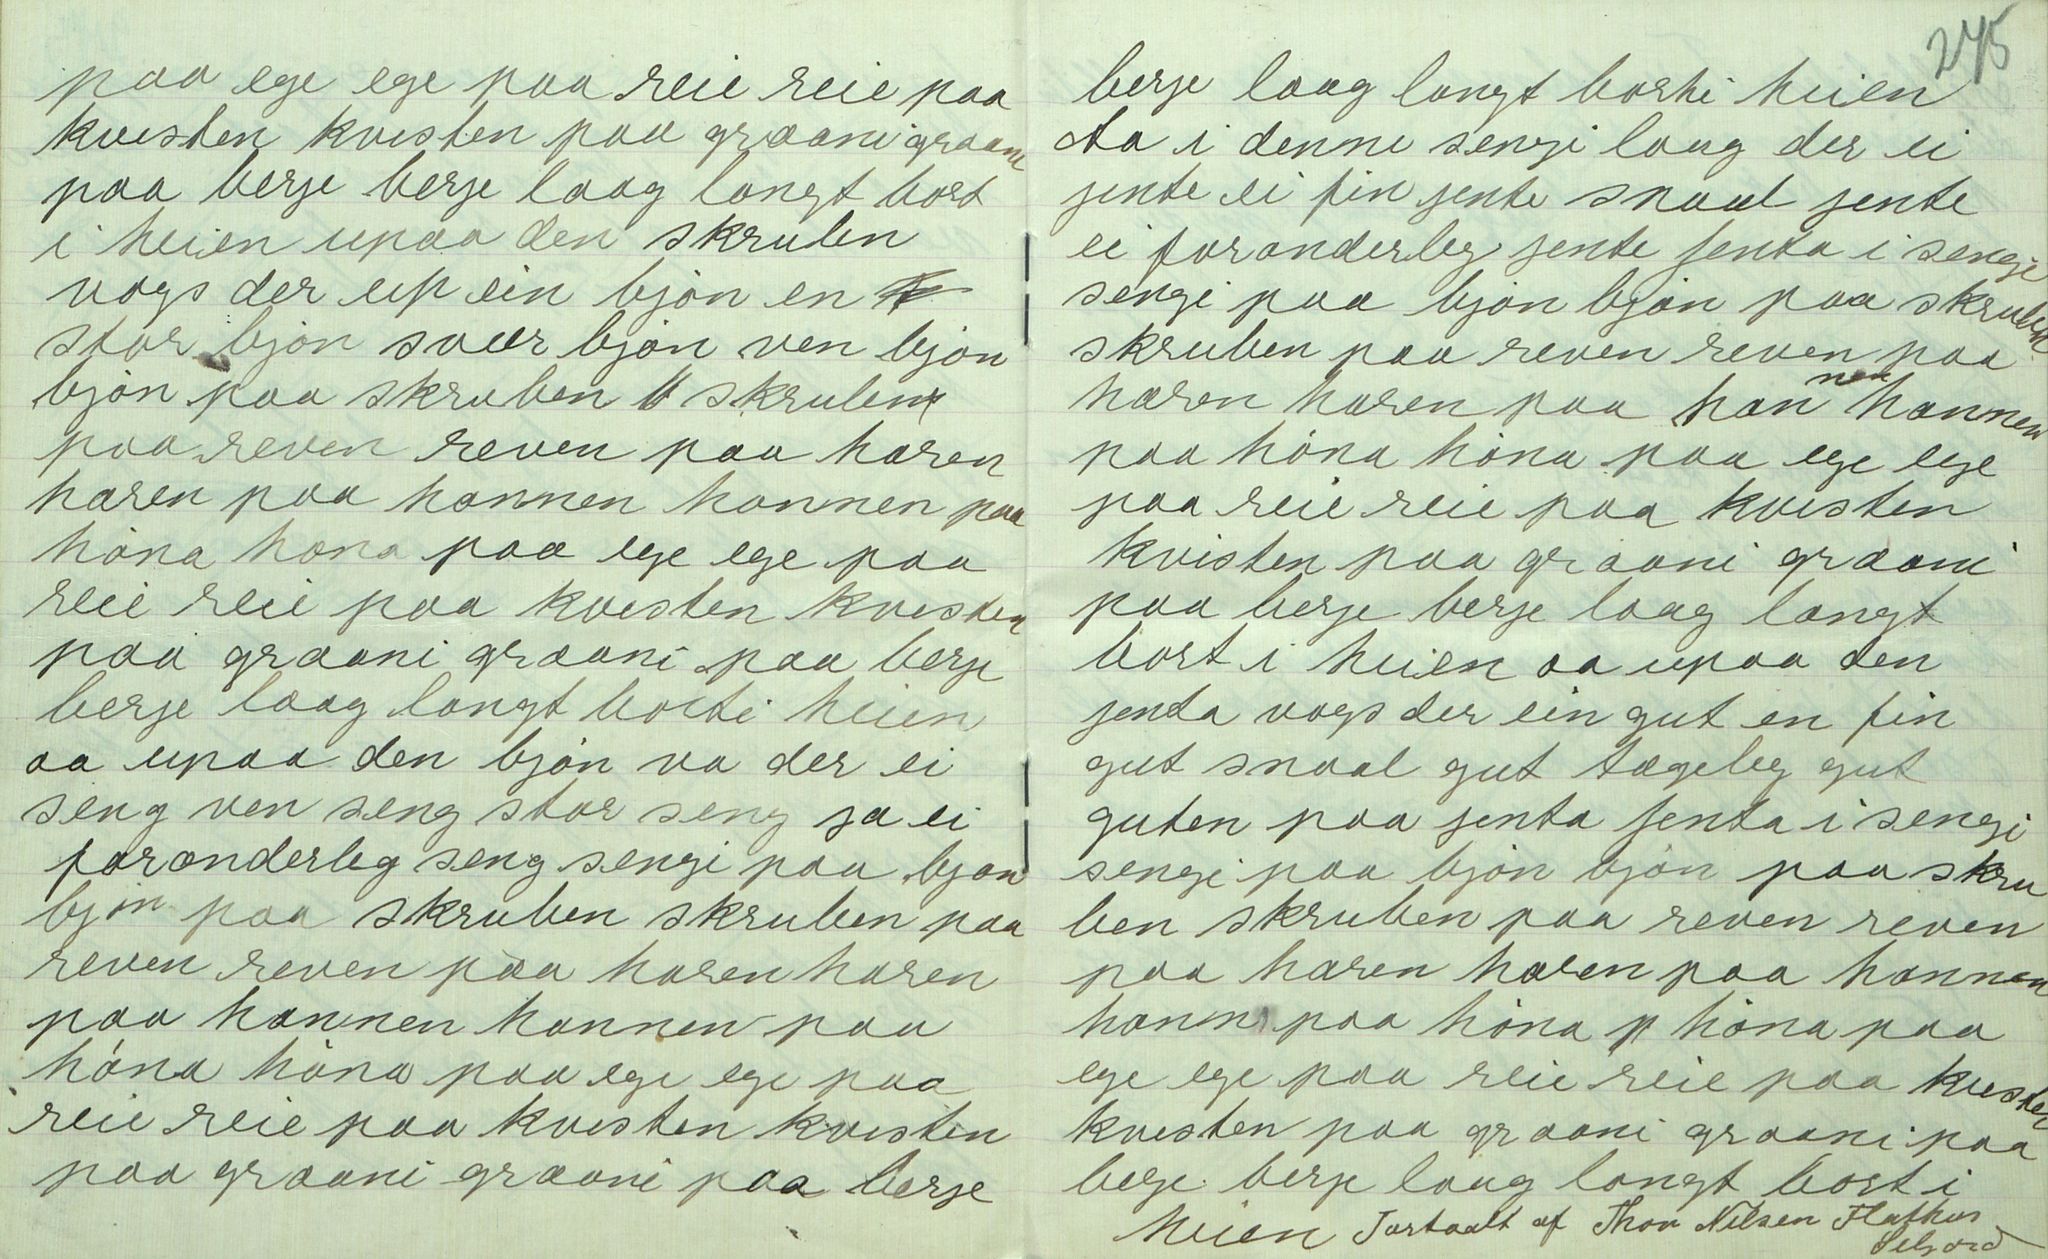 paa ege ege paa reie reie paa
kvisten kvisten paa graani graani
paa berje berje laag langt bort
i heien upaa den skruben
vogs der up ein bjón en
stor bjón svær bjón ven bjón
bjón paa skruben skruben
paa reven reven paa haren
haren paa hannen hannen paa
hóna hóna paa ege ege paa
reie reie paa kvisten kvisten
paa graani graani paa berje
berje laag langt borti heien
aa upaa den bjón va der ei
seng ven seng stor seng ja ei
foranderleg seng sengi paa bjón
bjón paa skruben skruben paa
reven reven paa haren haren
paa hannen hannen paa
hóna hóna paa ege ege paa
reie reie paa kvisten kvisten
paa graani graani paa berje
245
berje laag langt borti heien
Aa i denne sengi laag der ei
jente ei fin jente snaal jente
ei foranderleg jente jenta i sengi
sengi paa bjón bjón paa skruben
skruben paa reven reven paa
haren haren paa hannen hannen
paa hóna hóna paa ege ege
paa reie reie paa kvisten
kvisten paa graani graani
paa berje berje laag langt
bort i heien aa upaa den
jenta vogs der ein gut en fin
gut snaal gut tægeleg gut
guten paa jenta jenta i sengi
sengi paa bjón bjón paa skru
ben skruben paa reven reven
paa haren haren paa hannen
hannen paa hóna hóna paa
ege ege paa reie reie paa kvisten
kvisten paa graani graani paa
berje berje laag langt bort i
heien Fortaalt af Thor Nilsen Flathus
Seljord